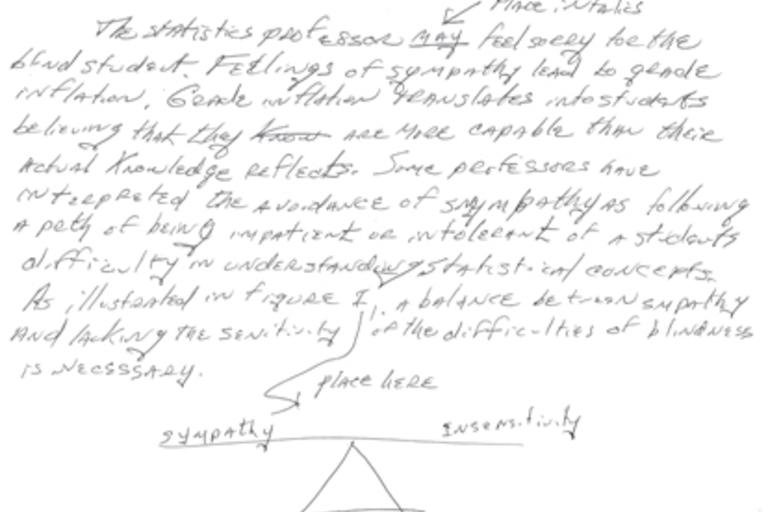 Place in italics
The statistics professor may feel sorry for the
blind student. Feelings of sympathy lead to grade
inflation. Grade inflation translates into students
believing that they know are more capable than their
actual knowledge reflects. Some professors have
interpreted the avoidance of smympathy as following
a path of being impatient or intolerant of a students
difficulty in understanding statistical concepts.
As illustrated in figure I, a balance between smpathy
and lacking the senitivity of the difficulties of blindness
is necsssary.
place here
sympathy Insensitivity